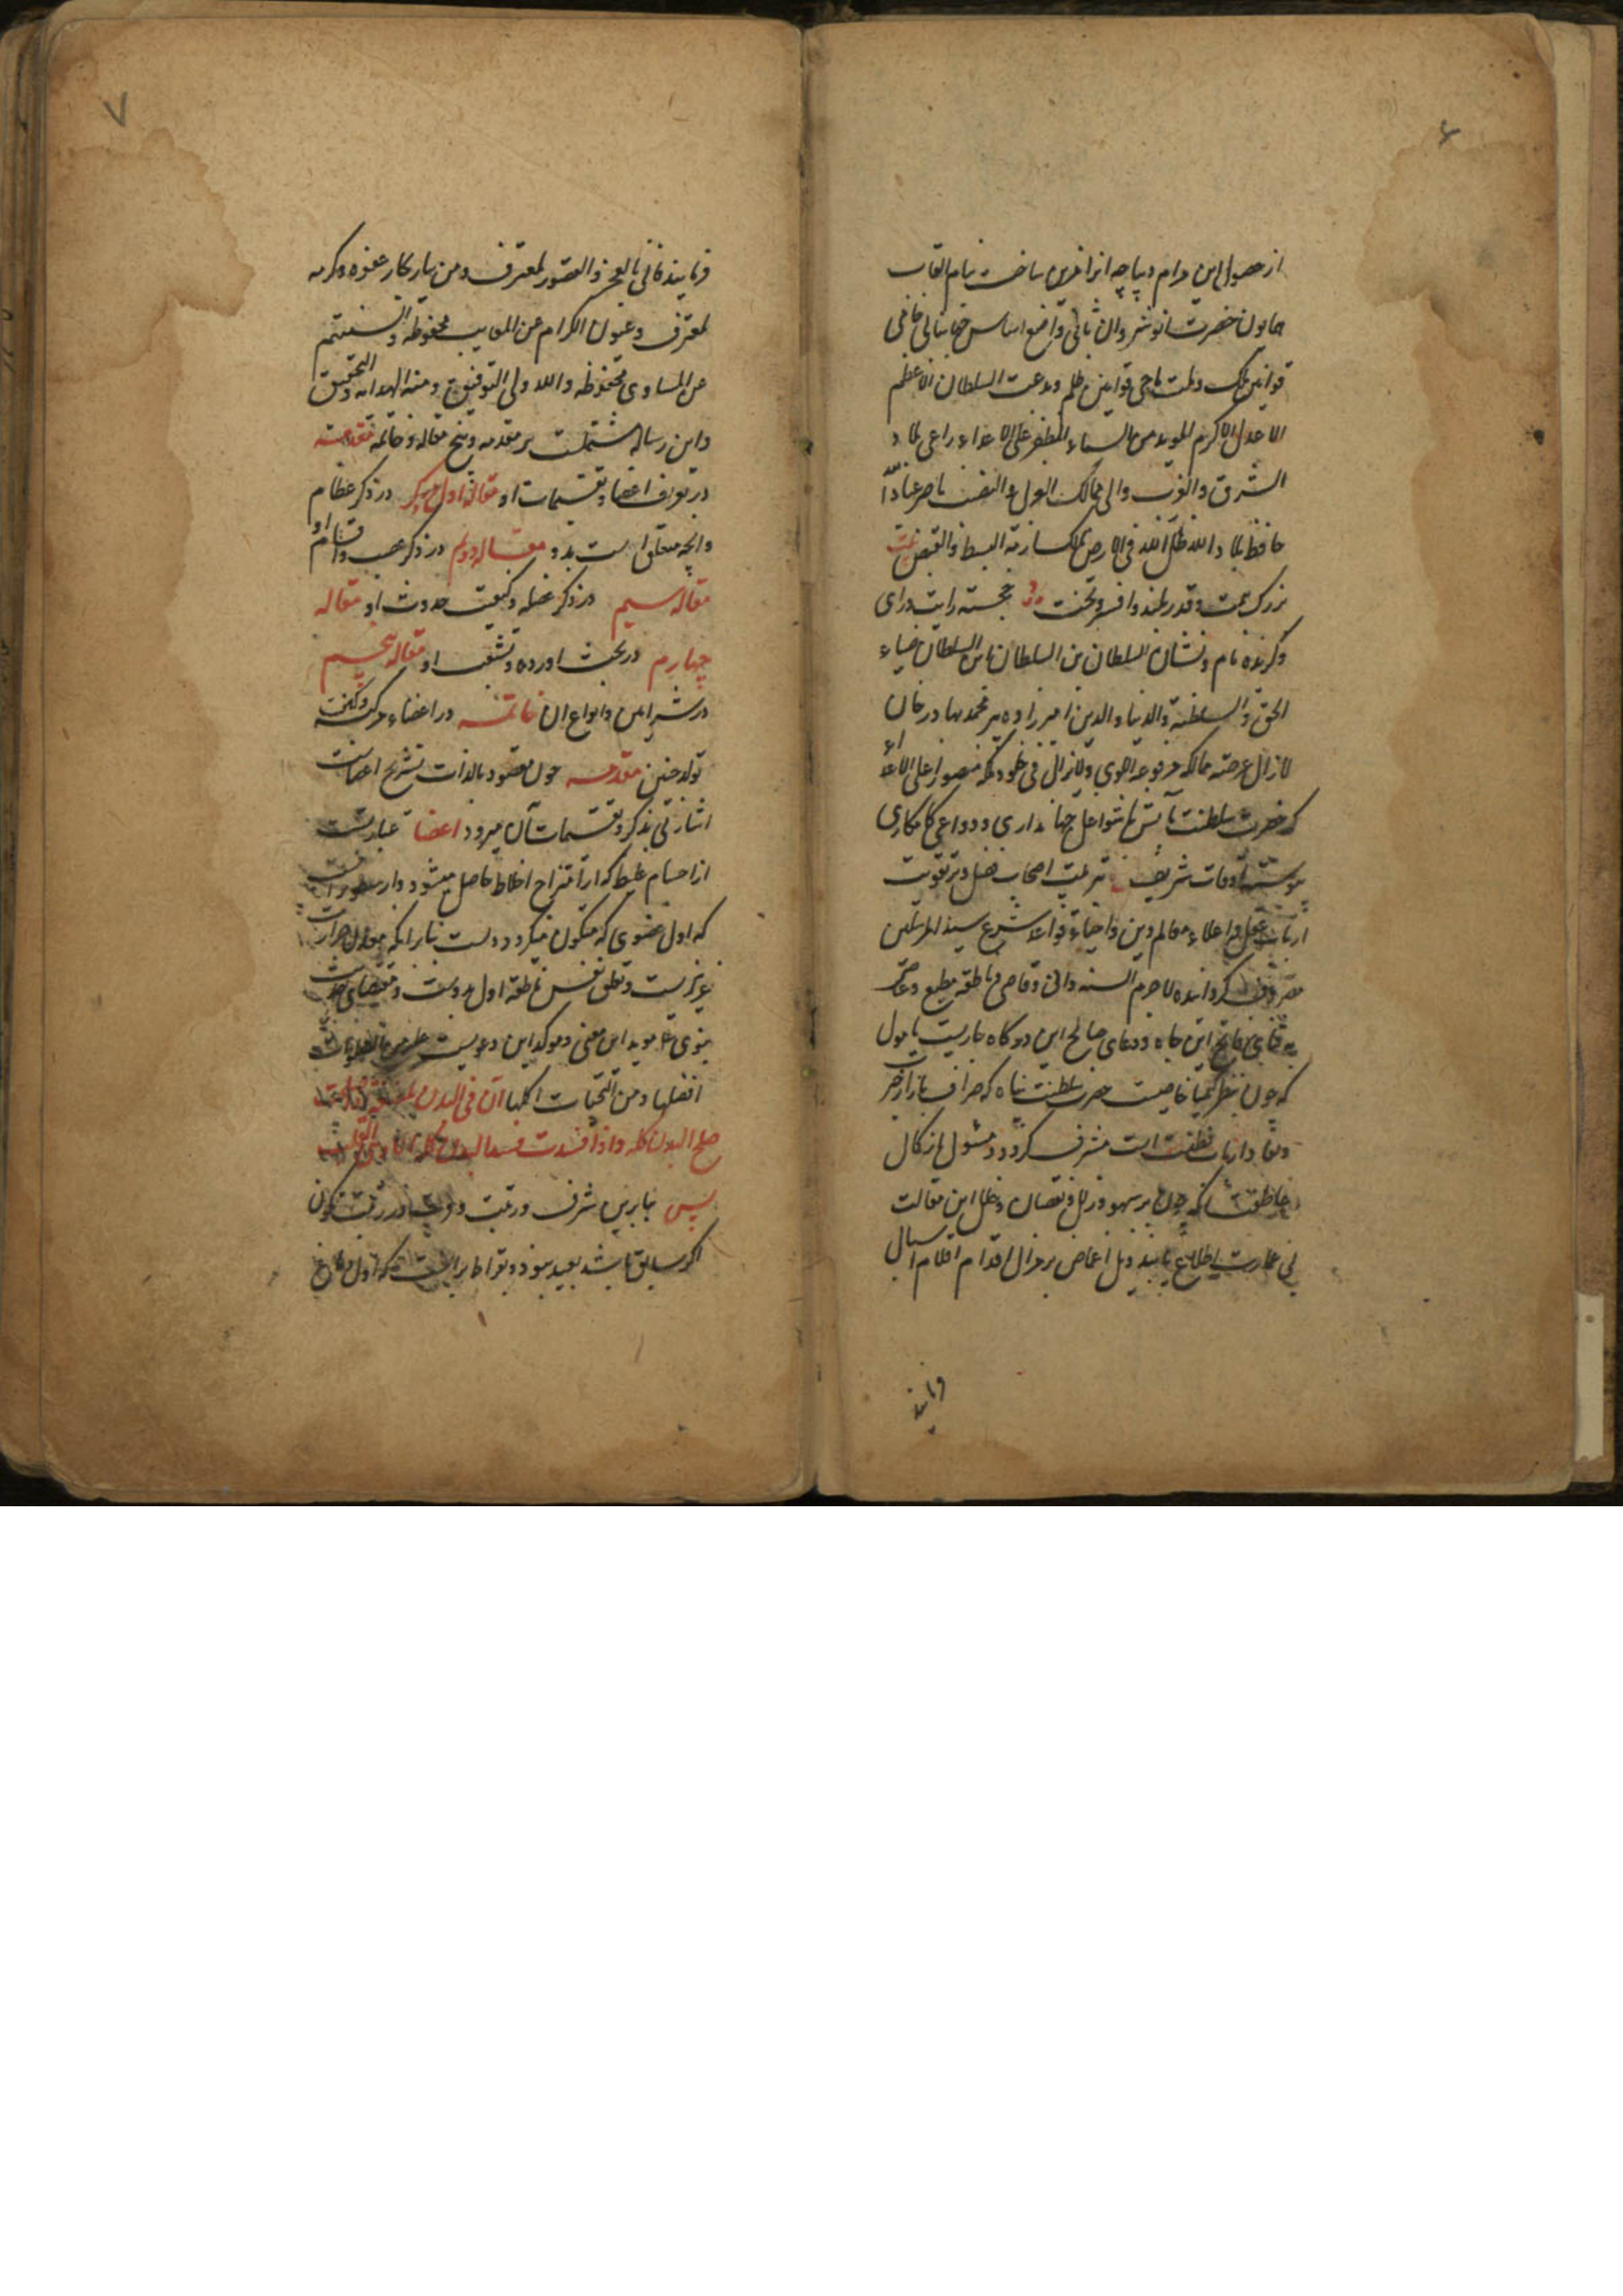 ۶
از حصول این مرام دیباچه انرا مزین ساخت بنام القاب
همایون حضرت انوشروان ثانی واضع اساس جهانبانی حامی
قوانین ملک و ملت ماحی قوانین ظلم و بدعت السلطان الاعظم
الاعدل الاکرم المؤید من السماء المظفر علی الاعداء راعی بلاد
الشرق والغرب والی ممالک العدل والنصفت ناصر عباد الله
حافظ بلاد الله ظل الله فی الارض مالک ازمة البسط والقبض بیت
بزرک همت و قدر بلند وافسر وتخت خجسته رایت ورای
وکزیده نام ونشان السلطان بن السلطان بن السلطان ضیاء
الحق والسلطنة والدنیا والدین امیرزاده پیر محمد بهادر خان
لازال عرصه ممالکه ولایزال فی خلود ملکه منصورا علی الاعداء
که حضرت سلطنت مآبش با شواغل جهانداری ودواعی کامکاری
پیوسته اوقات شریف بتربیت اصحاب فضل وبر تقویت
ارباب عقل واعلاء معالم دین واحیاء قواعد شرع سید المرسلین
مصروف کردانیده لاجرم السنه دانی وقاصی وناطقه مطیع وعاصی
این جاه ودعای صالح این درکاه جاریست مامول
که چون بنظر کیمیا خاصیت حضرت سلطنت پناه که صراف بازار خبر
ونقاد ارباب فطنت است مشرف کردد ومسئول از کمال
عاطفت انکه چون بر سهو وزلل ونقصان وخلل این مقالت
بی عبارت اطلاع یابند ذیل اغماض بر زلل اقدام اقلام اسبال
فرمایند
۷
فرمایند فانی بالعجز والقصور لمعترف ومن بحار عفوه وکرمه
لمغترف وعیون الکرام عن المعایب محفوظه والسنتهم
عن المساوی محفوظه والله ولی التوفیق ومنه الهدایه والتحقیق
واین رساله مشتملست بر مقدمه وپنج مقاله وخاتمه مقدمه
در تعریف اعضا وتقسیمات او مقاله اول در ذکر عظام
وانچه متعلق است بدو مقاله دوم در ذکر عصب واقسام او
مقاله سیم در ذکر عضله وکیفیت حدوث او مقاله
چهارم در بحث اورده وتشعب او مقاله پنجم
در شرایین وانواع ان خاتمه در اعضاء مرکبه وکیفیت
تولد جنین مقدمه چون مقصود بالذات تشریح اعضاست
اشارتی بذکر وتقسیمات آن میرود اعضا عبارتست
از اجسام غلیظ که از امتزاج اخلاط حاصل میشود
که اول عضوی که متکون میکردد دلست بنابرانکه معدن حرارت
غریزیست وتعلق نفس ناطقه اول بدوست ومقتضای حدیث
نبوی ۴ موید این معنی وموکد این دعویست
افضلها ومن التحیات اکملها ان فی البدن لمضغة اذا صلحت
صلح البدن کله واذا فسدت فسد البدن کله الا وهی القلب
پس بنابرین شرف ورتبت تکون
اکر سابق باشد بعید نبود وبقراط برانست که اول دماغ